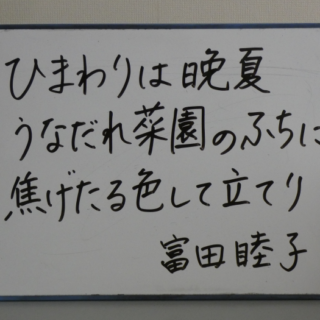 ひまわりは晩夏
うなだれ菜園のふちに
焦げたる色して立てり
富田睦子